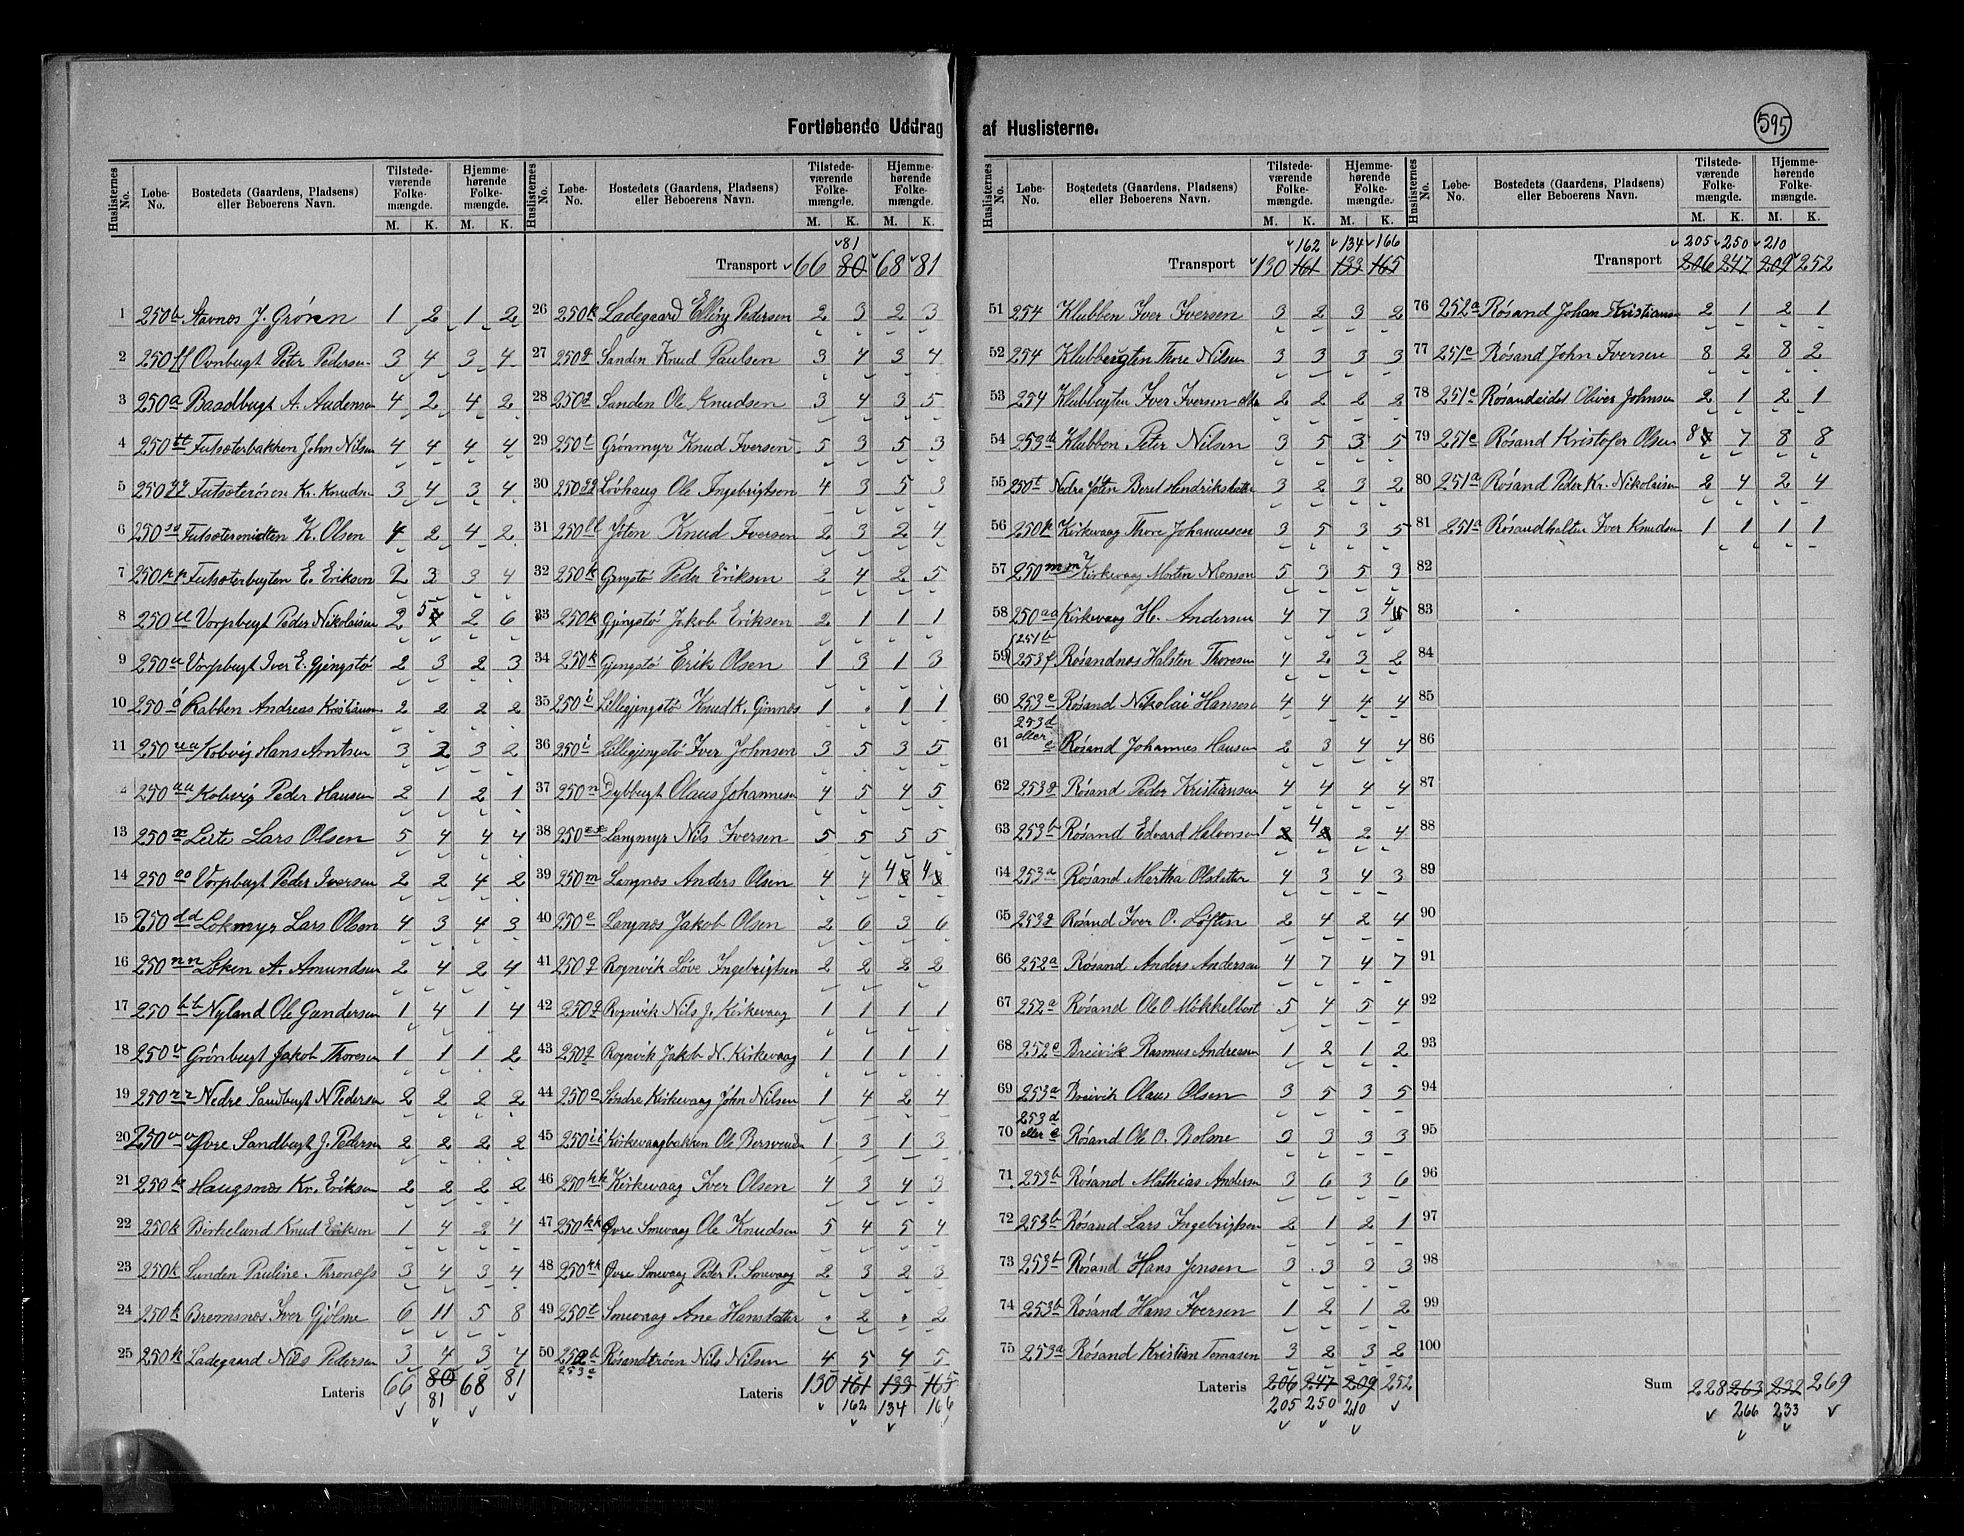 Fortløbende Uddrag af Huslisterne.
595
Huslisternes No. Løbe-No. Bostedets (Gaardens, Pladsens) eller Beboerens Navn. Tilstedeværende Folkemængde. M. K. Hjemmehørende Folkemængde. M. K.
1 250b Stavnes J. Grøren 1 2 1 2
2 250ff Ovnbugt Peter Pedersen 3 4 3 4
3 250a Baadbugt A. Audensen 4 2 4 2
4 250tt Futsæterbakken John Nilsen 4 4 4 4
5 250yy Futsæterøsen Kr. Knudsen 3 4 3 4
6 250sa Futsætermidten K. Olsen 4 2 4 2
7 250 Futsæterbugten E. Eriksen 2 3 3 4
8 250 Vorpbugt Peder Nikolaisen 2 5 2 6
9 250a Vorpbugt Iver E. Gjengstø 2 3 2 3
10 250ó Rabben Andreas Kristiansen 2 2 2 2
11 250 Kolvig Hans Arntsen 3 2 3 2
250aa Kolvig Peder Hansen 2 1 2 1
13 250æ Leite Lars Olsen 5 4 4 4
14 250 Vorpbugt Peder Iversen 2 2 4 2
15 250dd Lokmyr Lars Olsen 4 3 4 3
16 250nn Løken A. Amundsen 2 4 2 4
17 250bb Nyland Ole Gundersen 1 4 1 4
18 250v Grønbugt Jakob Thoresen 1 1 1 2
19 250zz Nedre Sandbugt N Pedersen 2 2 2 2
20 250 Øvre Sandbugt J. Pedersen 2 2 2 2
21 250k Haugsnes Kr. Eriksen 2 2 2 2
22 250k Birkelund Knud Eriksen 1 4 2 4
23 250k Lunden Pauline Thronæs 3 4 3 4
24 250k Bremsnes Iver Gjølme 6 11 5 8
25 250k Ladegaard Nils Pedersen 3 4 3 4
Lateris 66 80 68 81
81
Huslisternes No. Løbe-No. Bostedets (Gaardens, Pladsens) eller Beboerens Navn. Tilstedeværende Folkemængde. M. K. Hjemmehørende Folkemængde. M. K.
81
Transport 66 80 68 81
26 250k Ladegaard Elling Pedersen 2 3 2 3
27 250g Sanden Knud Paulsen 3 4 3 4
28 250g Sanden Ole Knudsen 3 4 3 5
29 250t Grønmyr Knud Iversen 5 3 5 3
30 250gg Løvhaug Ole Ingebrigtsen 4 3 5 3
31 250ll Jøten Knud Iversen 2 3 2 4
32 250k Gjengstø Peder Eriksen 2 4 2 5
33 250k Gjengstø Jakob Eriksen 2 1 1 1
34 250k Gjengstø Erik Olsen 1 3 1 3
35 250i Lillegjengstø Knud K. Gimnes 1 . 1 1
36 250i Lillegjengstø Iver Johnsen 3 5 3 5
37 250n Dybbugt Olaus Johannesen 4 5 4 5
38 250 Langmyr Nils Iversen 5 5 5 5
39 250m Langnes Anders Olsen 4 4 4 4
40 250e Langnes Jakob Olsen 2 6 3 6
41 250q Rognvik Løve Ingebrigtsen 2 2 2 2
42 250q Rognvik Nils J. Kirkevaag 1 1 1 1
43 250q Rognvik Jakob N. Kirkevaag 1 1 1 1
44 250o Søndre Kirkevaag John Nilsen 1 4 2 4
45 250ii Kirkevaagbakken Ole Bersvendsen 1 3 1 3
46 250hh Kirkevaag Iver Olsen 4 3 4 3
47 250kk Øvre Smevaag Ole Knudsen 5 4 5 4
48 250kk Øvre Smevaag Peder P. Smevaag 2 3 2 3
49 250t Smevaag Ane Hansdatter . 2 . 2
50 252b 253a Røsandtrøen Nils Nilsen 4 5 4 5
Lateris 130 161 133 165
162 134 166
Huslisternes No. Løbe-No. Bostedets (Gaardens, Pladsens) eller Beboerens Navn. Tilstedeværende Folkemængde. M. K. Hjemmehørende Folkemængde. M. K.
162 134 166
Transport 130 161 133 165
51 254 Klubben Iver Iversen 3 2 3 2
52 254 Klubbugten Thore Nilsen 3 3 3 3
53 254 Klubbugten Iver Iversen 2 2 2 2
54 253b Klubben Peter Nilsen 3 5 3 5
55 250t Nedre Jøten Beret Hendriksdatter 3 2 3 2
56 250k Kirkevaag Thore Johannesen 3 5 3 5
57 250mm Kirkevaag Morten Monsen 5 3 5 3
58 250aa Kirkevaag H. Andersen 4 7 3 4
251b
59 253f Røsandnes Halsten Thoresen 4 2 3 2
60 253e Røsand Nikolai Hansen 4 4 4 4
253d
61 eller e Røsand Johannes Hansen 2 3 4 4
62 253g Røsand Peder Kristiansen 4 4 4 4
63 253b Røsand Edvard Halvorsen 1 4 2 4
64 253a Røsand Martha Olsdatter 4 3 4 3
65 253g Røsand Iver O. Løften 2 4 2 4
66 252a Røsand Anders Andersen 4 7 4 7
67 252a Røsand Ole O Mökkelbost 5 4 5 4
68 252e Breivik Rasmus Andreasen 1 2 1 2
69 253a Breivik Olaus Olsen 3 5 3 5
253d
70 eller e Røsand Ole O. Bolme 3 3 3 3
71 253b Røsand Mathias Andersen 3 6 3 6
72 253b Røsand Lars Ingebrigtsen 2 1 2 1
73 253b Røsand Hans Jensen 3 3 3 3
74 253b Røsand Hans Iversen 1 2 1 2
75 253a Røsand Kristian Tomasen 3 2 3 2
Lateris 206 247 209 252
205 250 210
Huslisternes No. Løbe-No. Bostedets (Gaardens, Pladsens) eller Beboerens Navn. Tilstedeværende Folkemængde. M. K. Hjemmehørende Folkemængde. M. K.
205 250 210
Transport 206 247 209 252
76 252a Røsand Johan Kristiansen 2 1 2 1
77 251c Røsand John Iversen 8 2 8 2
78 251c Røsandeidet Oliver Johnsen 2 1 2 1
79 251c Røsand Kristofer Olsen 8 7 8 8
80 251a Røsand Peder Kr. Nikolaisen 2 4 2 4
81 251a Røsandhalten Iver Knudsen 1 1 1 1
82
83
84
85
86
87
88
89
90
91
92
93
94
95
96
97
98
99
100
Sum 228 263 232 269
266 233